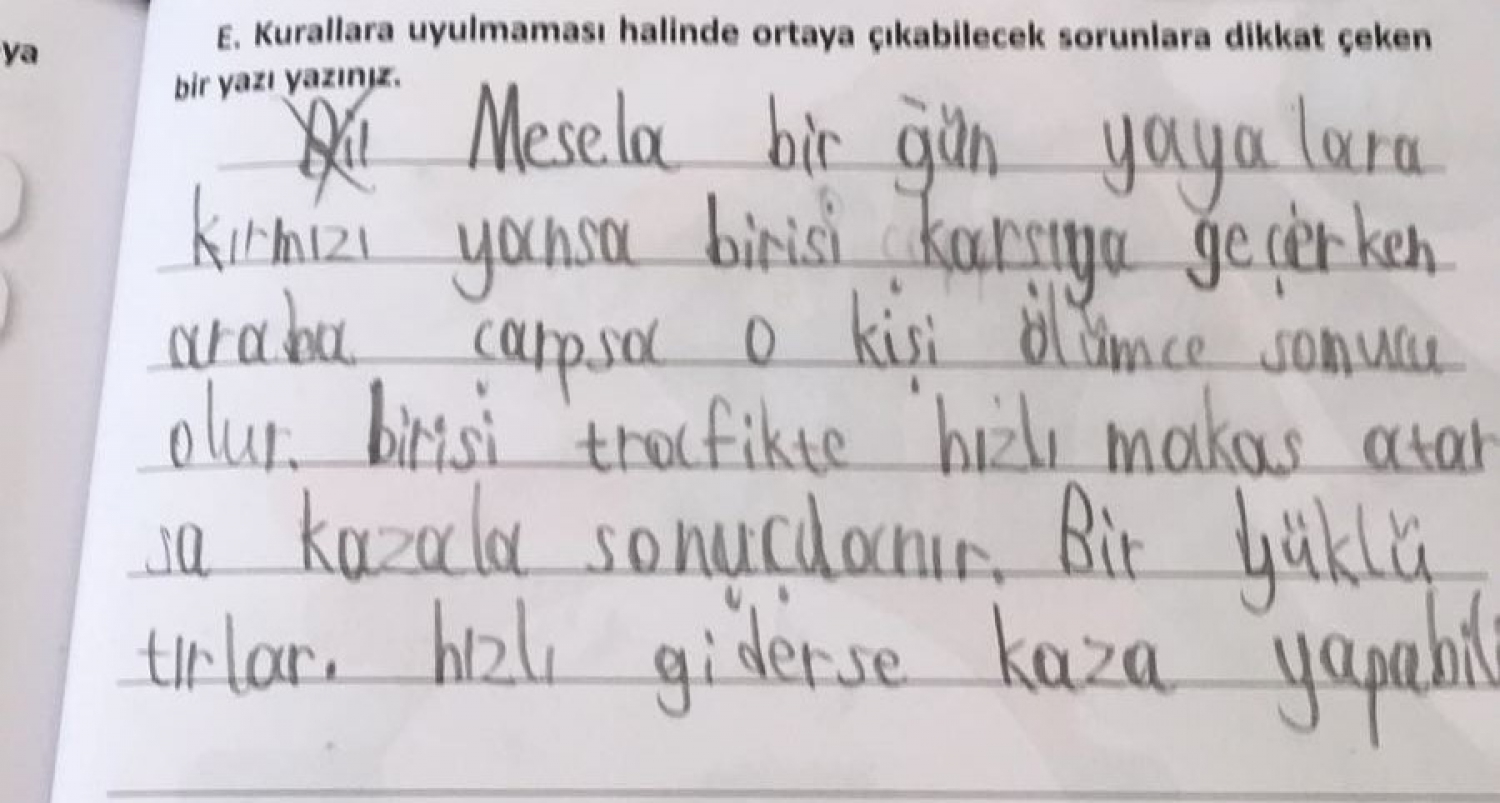 ya
E. Kurallara uyulmaması halinde ortaya çıkabilecek sorunlara dikkat çeken
bir yazı yazınız.
Mesela bir gün yayalara
kırmızı yansa birisi karsıya geçerken
araba carpsa o kişi ölümce sonucu
olur. birisi trafikte hızlı makas atar
sa kazala sonucdanır. Bir yüklü
tırlar. hızlı giderse kaza yapabili